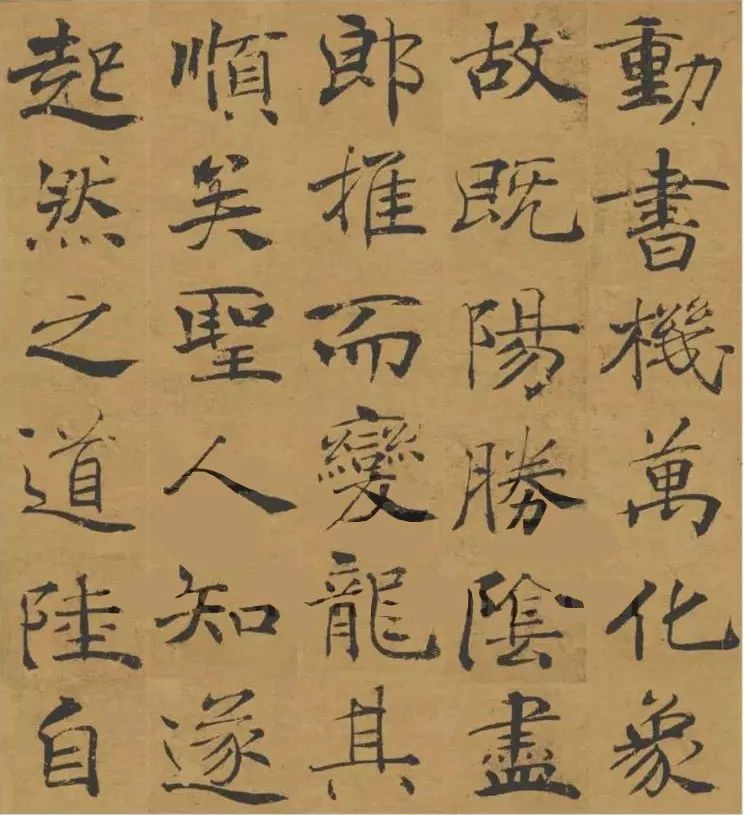 動書機萬化象
故既陽勝陰盡
郎推而變龍其
順矣聖人知遂
起然之道陸自